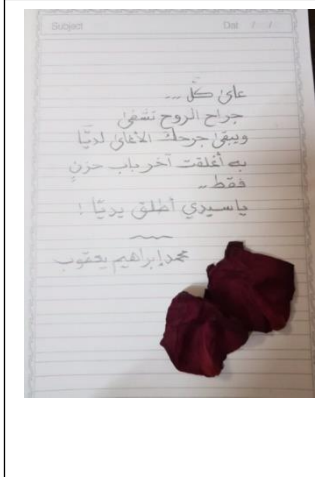 Subject Date / /
على كلٍّ ...
جراح الروح تشفى
ويبقى جرحك الأغلى لديّا
به أغلقت آخر باب حزنٍ
فقط..
ياسيدي أطلق يديّا !
محمد إبراهيم يعقوب